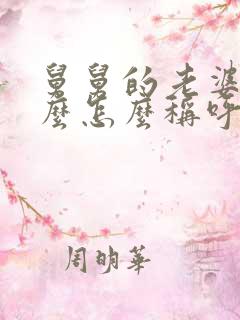 舅舅的老婆
麼怎麼稱呼
周明華